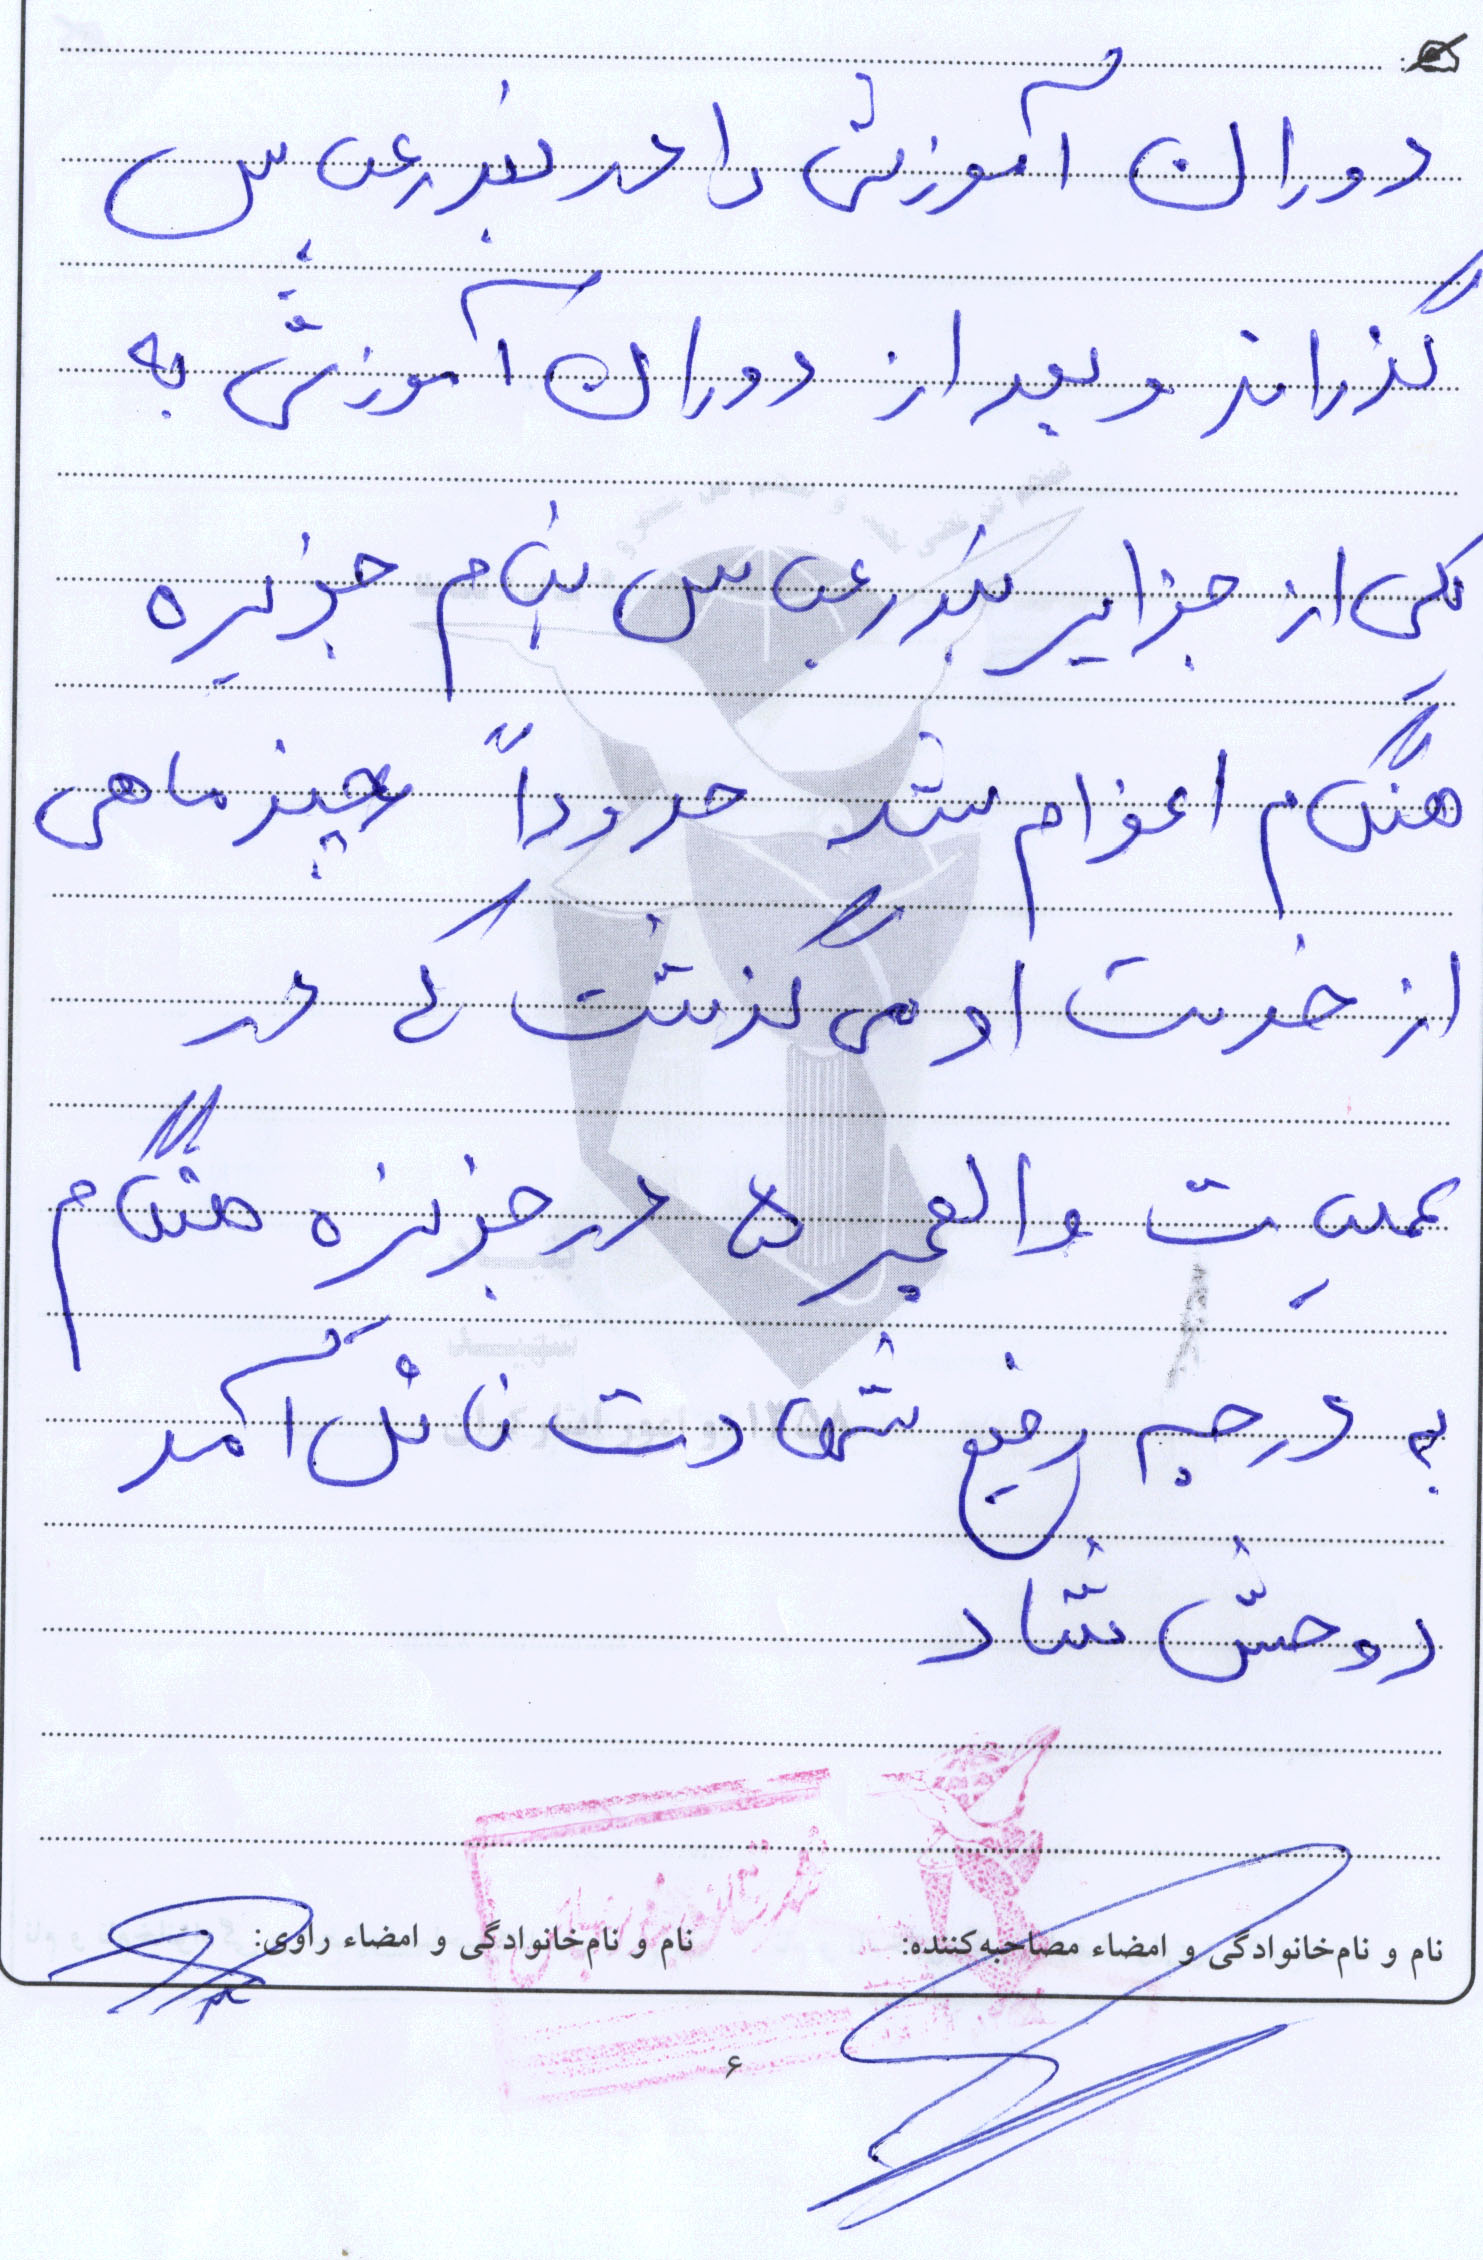 دوران آموزشی را در بندرعباس
گذراند و بعد از دوران آموزشی به
یکی از جزایر بندرعباس بنام جزیره
هنگام اعزام شد حدوداً چند ماهی
از خدمت او می گذشت که در
عملیات والفجر ۵ در جزیره هنگام
به درجه رفیع شهادت نائل آمد
روحش شاد
نام و نام‌خانوادگی و امضاء مصاحبه‌کننده:
نام و نام‌خانوادگی و امضاء راوی:
۶